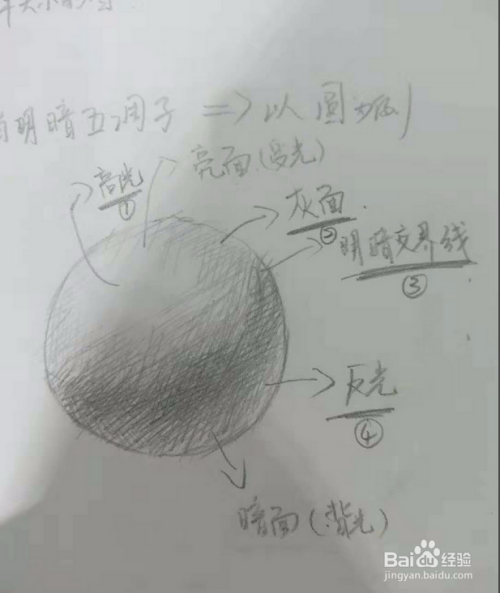 明暗五调子 => 以圆为例
亮面(受光)
高光
①
灰面.
②
明暗交界线
③
反光
④
暗面(背光)
Baidu经验
jingyan.baidu.com